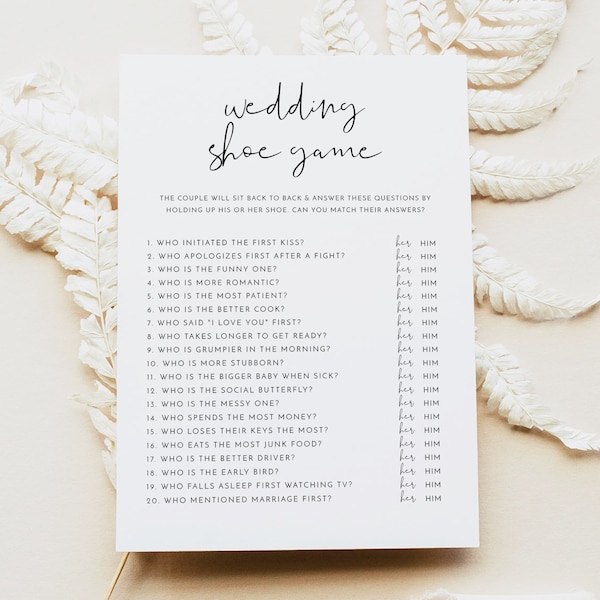 wedding
shoe game
THE COUPLE WILL SIT BACK TO BACK & ANSWER THESE QUESTIONS BY
HOLDING UP HIS OR HER SHOE. CAN YOU MATCH THEIR ANSWERS?
1. WHO INITIATED THE FIRST KISS? her HIM
2. WHO APOLOGIZES FIRST AFTER A FIGHT? her HIM
3. WHO IS THE FUNNY ONE? her HIM
4. WHO IS MORE ROMANTIC? her HIM
5. WHO IS THE MOST PATIENT? her HIM
6. WHO IS THE BETTER COOK? her HIM
7. WHO SAID "I LOVE YOU" FIRST? her HIM
8. WHO TAKES LONGER TO GET READY? her HIM
9. WHO IS GRUMPIER IN THE MORNING? her HIM
10. WHO IS MORE STUBBORN? her HIM
11. WHO IS THE BIGGER BABY WHEN SICK? her HIM
12. WHO IS THE SOCIAL BUTTERFLY? her HIM
13. WHO IS THE MESSY ONE? her HIM
14. WHO SPENDS THE MOST MONEY? her HIM
15. WHO LOSES THEIR KEYS THE MOST? her HIM
16. WHO EATS THE MOST JUNK FOOD? her HIM
17. WHO IS THE BETTER DRIVER? her HIM
18. WHO IS THE EARLY BIRD? her HIM
19. WHO FALLS ASLEEP FIRST WATCHING TV? her HIM
20. WHO MENTIONED MARRIAGE FIRST? her HIM